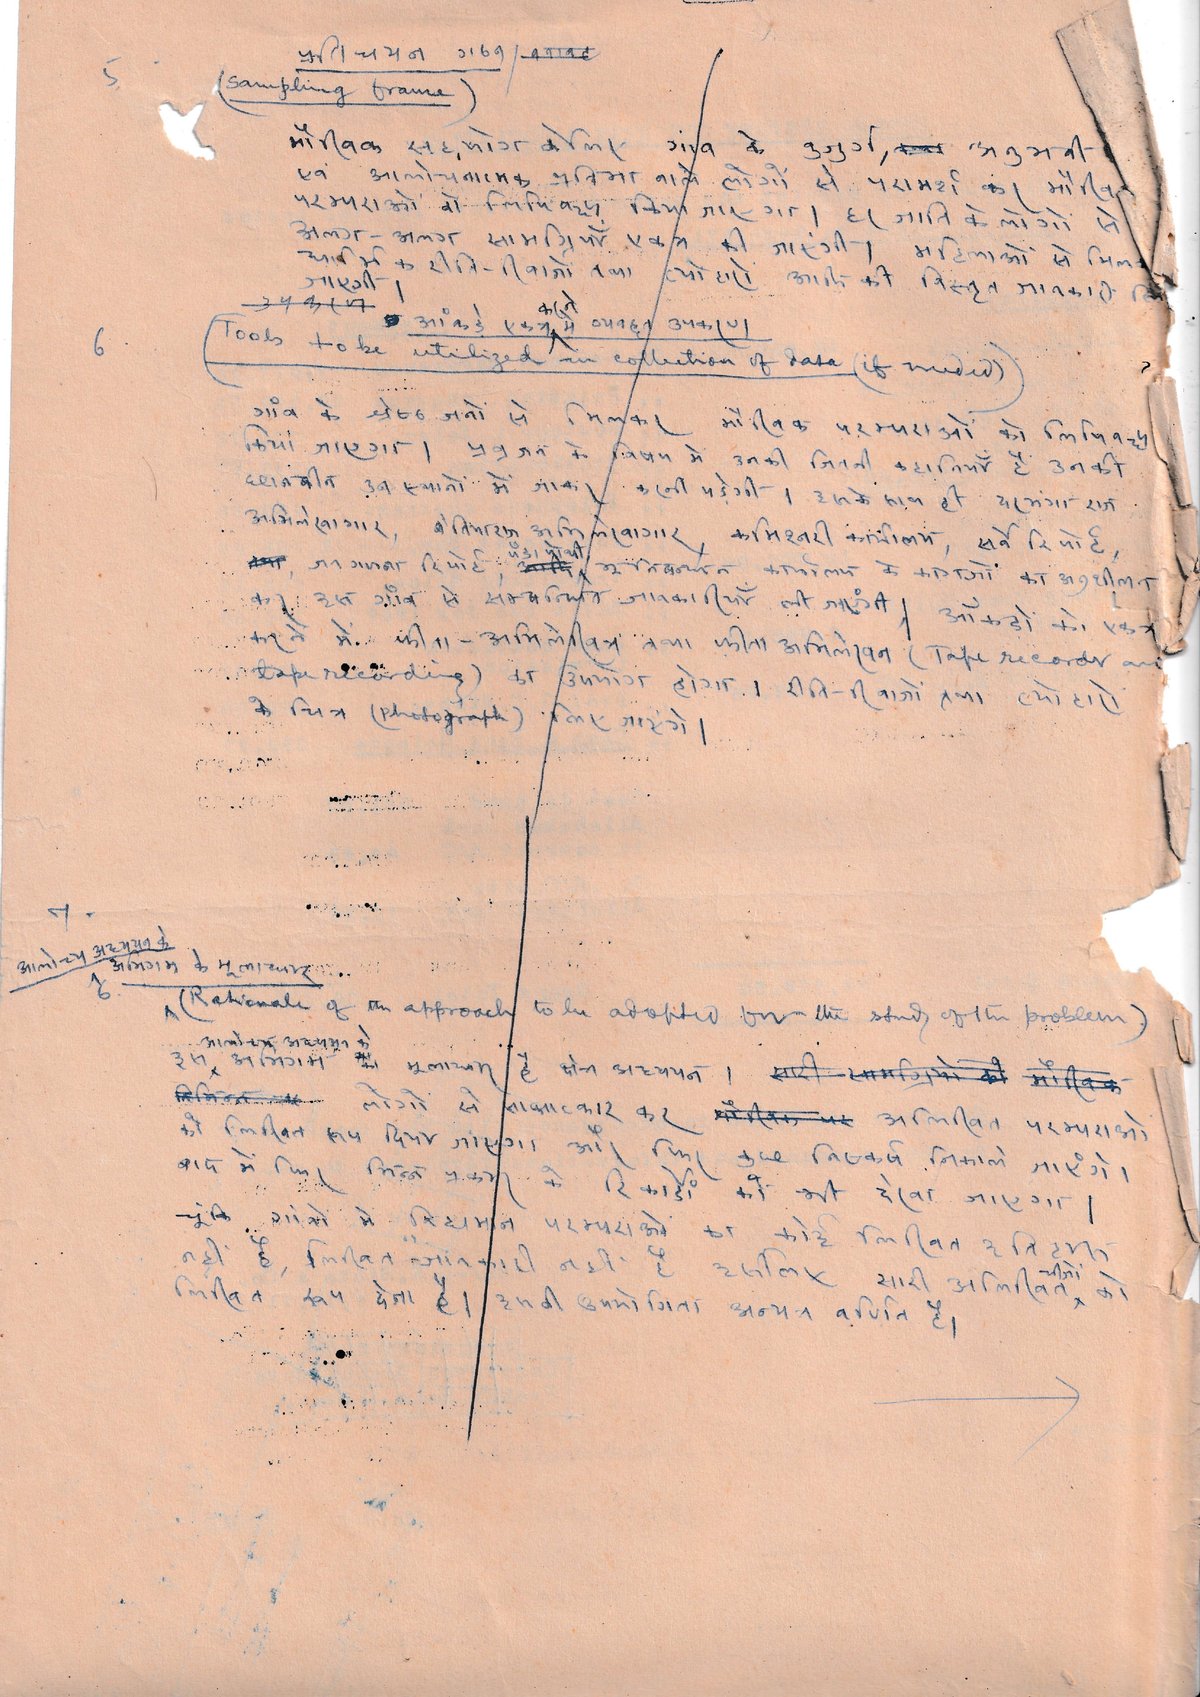 5. प्रतिचयन गठन /
(Sampling frame)
मौखिक सहयोग के लिए गांव के बुजुर्ग, अनुभवी
एवं आलोचनात्मक प्रतिभा वाले लोगों से परामर्श कर मौखिक
परम्पराओं को लिपिबद्ध किया जाएगा। हर जाति के लोगों से
अलग-अलग सामग्रियाँ एकत्र की जाएंगी। महिलाओं से मिलकर
के रीति-रिवाजों तथा त्योहारों आदि की विस्तृत जानकारी
जाएगी।
उपकरण
6 आँकड़े एकत्र करने में व्यवहृत उपकरण
(Tools to be utilized in collection of data (if needed))
गाँव के श्रेष्ठ जनों से मिलकर मौखिक परम्पराओं को लिपिबद्ध
किया जाएगा। के विषय में उनकी जितनी कहानियाँ हैं उनकी
छानबीन उन स्थानों में जाकर करनी पड़ेगी। इसके साथ ही दरभंगा राज
अभिलेखागार, अभिलेखागार, कमिश्नरी कार्यालय, सर्वे रिपोर्ट,
जनगणना रिपोर्ट, पँजी कार्यालय के कागजों का अनुशीलन
कर इस गाँव से सम्बन्धित जानकारियाँ ली जाएंगी। आँकड़ों को एकत्र
करने में फीता-अभिलेखित्र तथा फीता अभिलेखन (Tape recorder and
tape recording) का उपयोग होगा। रीति-रिवाजों तथा त्योहारों
के चित्र (photograph) लिए जाएंगे।
7.
आलोच्य अध्ययन के
अभिगम के मूलाधार
(Rationale of the approach to be adopted for the study of the problem)
आलोच्य अध्ययन के
इस अभिगम का मूलाधार है क्षेत्र अध्ययन। सारी सामग्रियों की मौखिक
लोगों से साक्षात्कार कर अलिखित परम्पराओं
को लिखित रूप दिया जाएगा और फिर कुछ निष्कर्ष निकाले जाएंगे।
बाद में फिर भिन्न प्रकार के रिकार्डों को भी देखा जाएगा।
चूंकि गांवों में विद्यमान परम्पराओं का कोई लिखित इतिहास
नहीं है, लिखित जानकारी नहीं है इसलिए सारी अलिखित चीजों को
लिखित रूप देना है। इसकी उपयोगिता अन्यत्र वर्णित है।